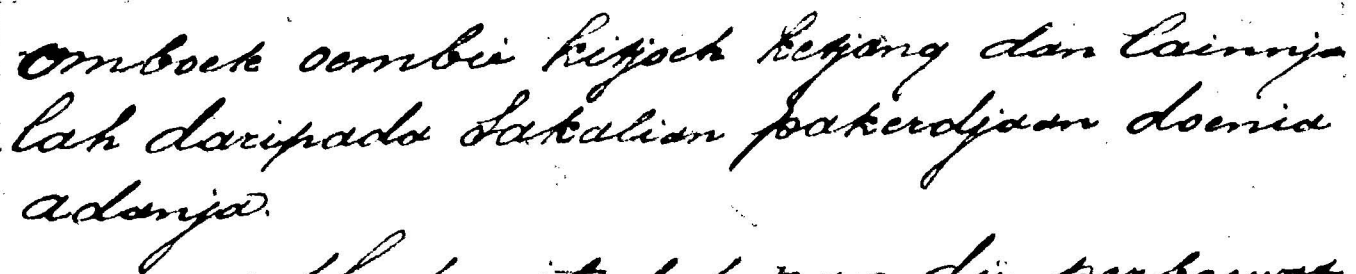 omboek oembii kitjoeh ketjang dan lainnja
lah daripada sakalian pakerdjaan doenia
adanja.